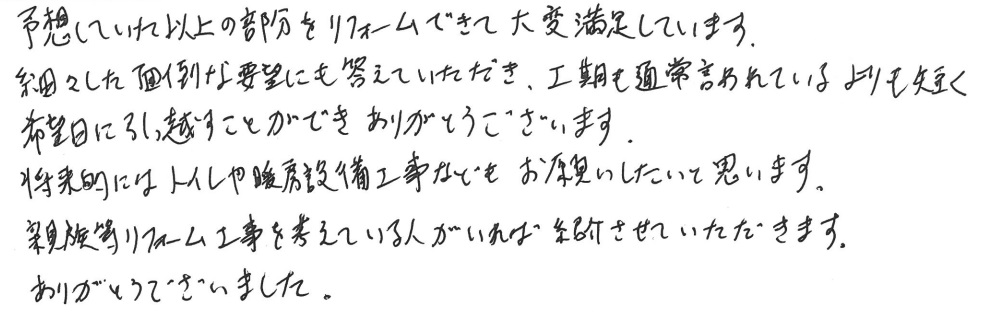 予想していた以上の部分をリフォームできて大変満足しています。
細々した面倒な要望にも答えていただき、工期も通常言われているよりも短く
希望日に引っ越すことができありがとうございます。
将来的にはトイレや暖房設備工事などもお願いしたいと思います。
親族等リフォーム工事を考えている人がいれば紹介させていただきます。
ありがとうございました。